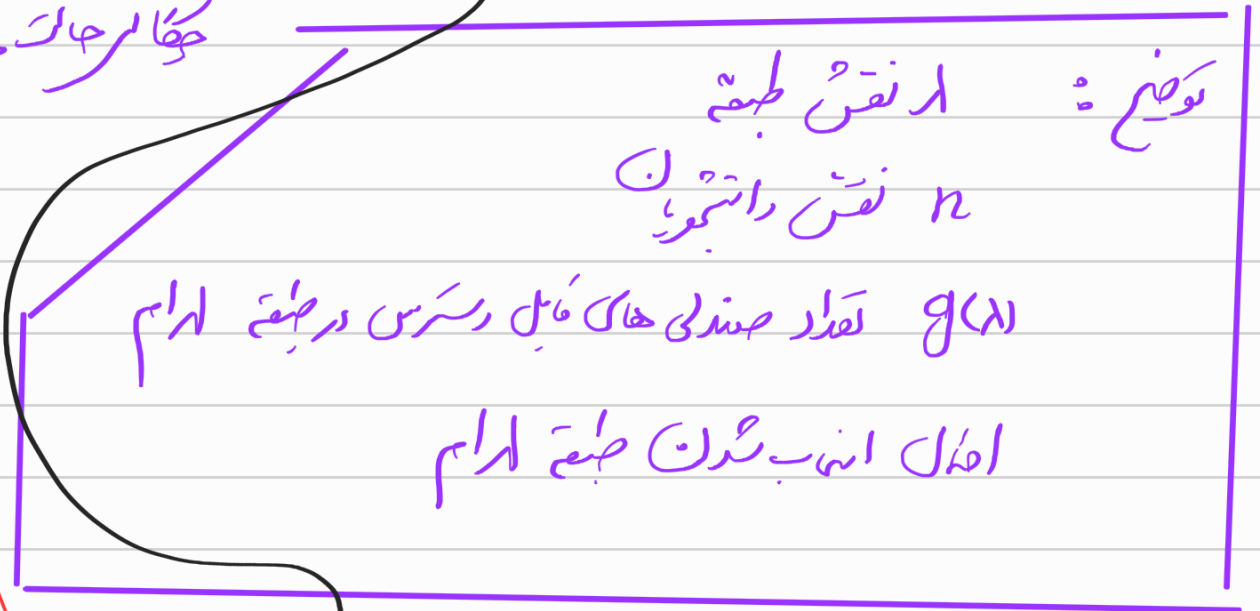 حقا لرحاك.
توضیح : λ نقش طبقه
n نقش دانشجویان
g(λ) تعداد صندلی های قابل دسترس در طبقه λ ام
احتمال انتخاب شدن طبقه λ ام